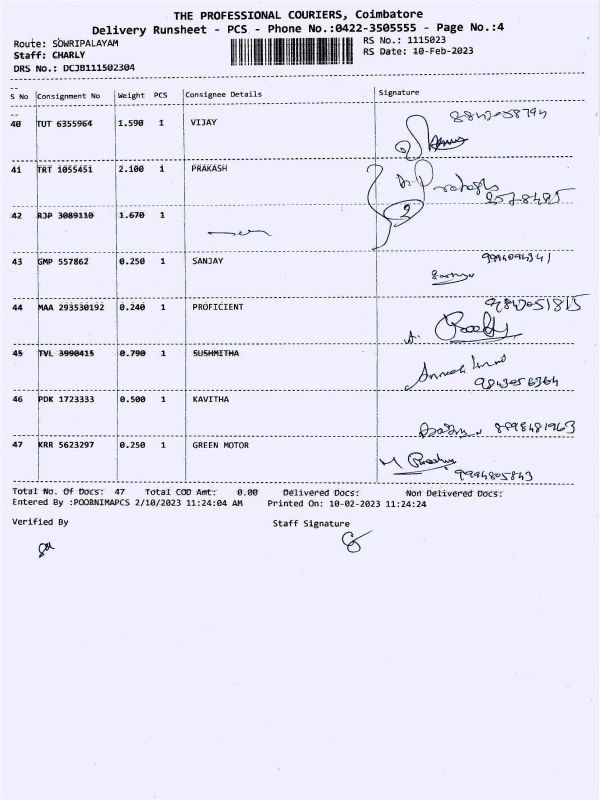 THE PROFESSIONAL COURIERS, Coimbatore
Delivery Runsheet - PCS - Phone No.:0422-3505555 - Page No.:4
Route: SOWRIPALAYAM RS No.: 1115023
Staff: CHARLY RS Date: 10-Feb-2023
DRS No.: DCJB111502304
S No Consignment No Weight PCS Consignee Details Signature
40 TUT 6355964 1.590 1 VIJAY
41 TRT 1055451 2.100 1 PRAKASH
42 RJP 3089110 1.670 1
43 GMP 557862 0.250 1 SANJAY
44 MAA 293530192 0.240 1 PROFICIENT 9843051815
45 TVL 3990415 0.790 1 SUSHMITHA
9843056364
46 PDK 1723333 0.500 1 KAVITHA
8898481963
47 KRR 5623297 0.250 1 GREEN MOTOR
9994805843
Total No. Of Docs: 47 Total COD Amt: 0.00 Delivered Docs: Non Delivered Docs:
Entered By :POORNIMAPCS 2/10/2023 11:24:04 AM Printed On: 10-02-2023 11:24:24
Verified By Staff Signature